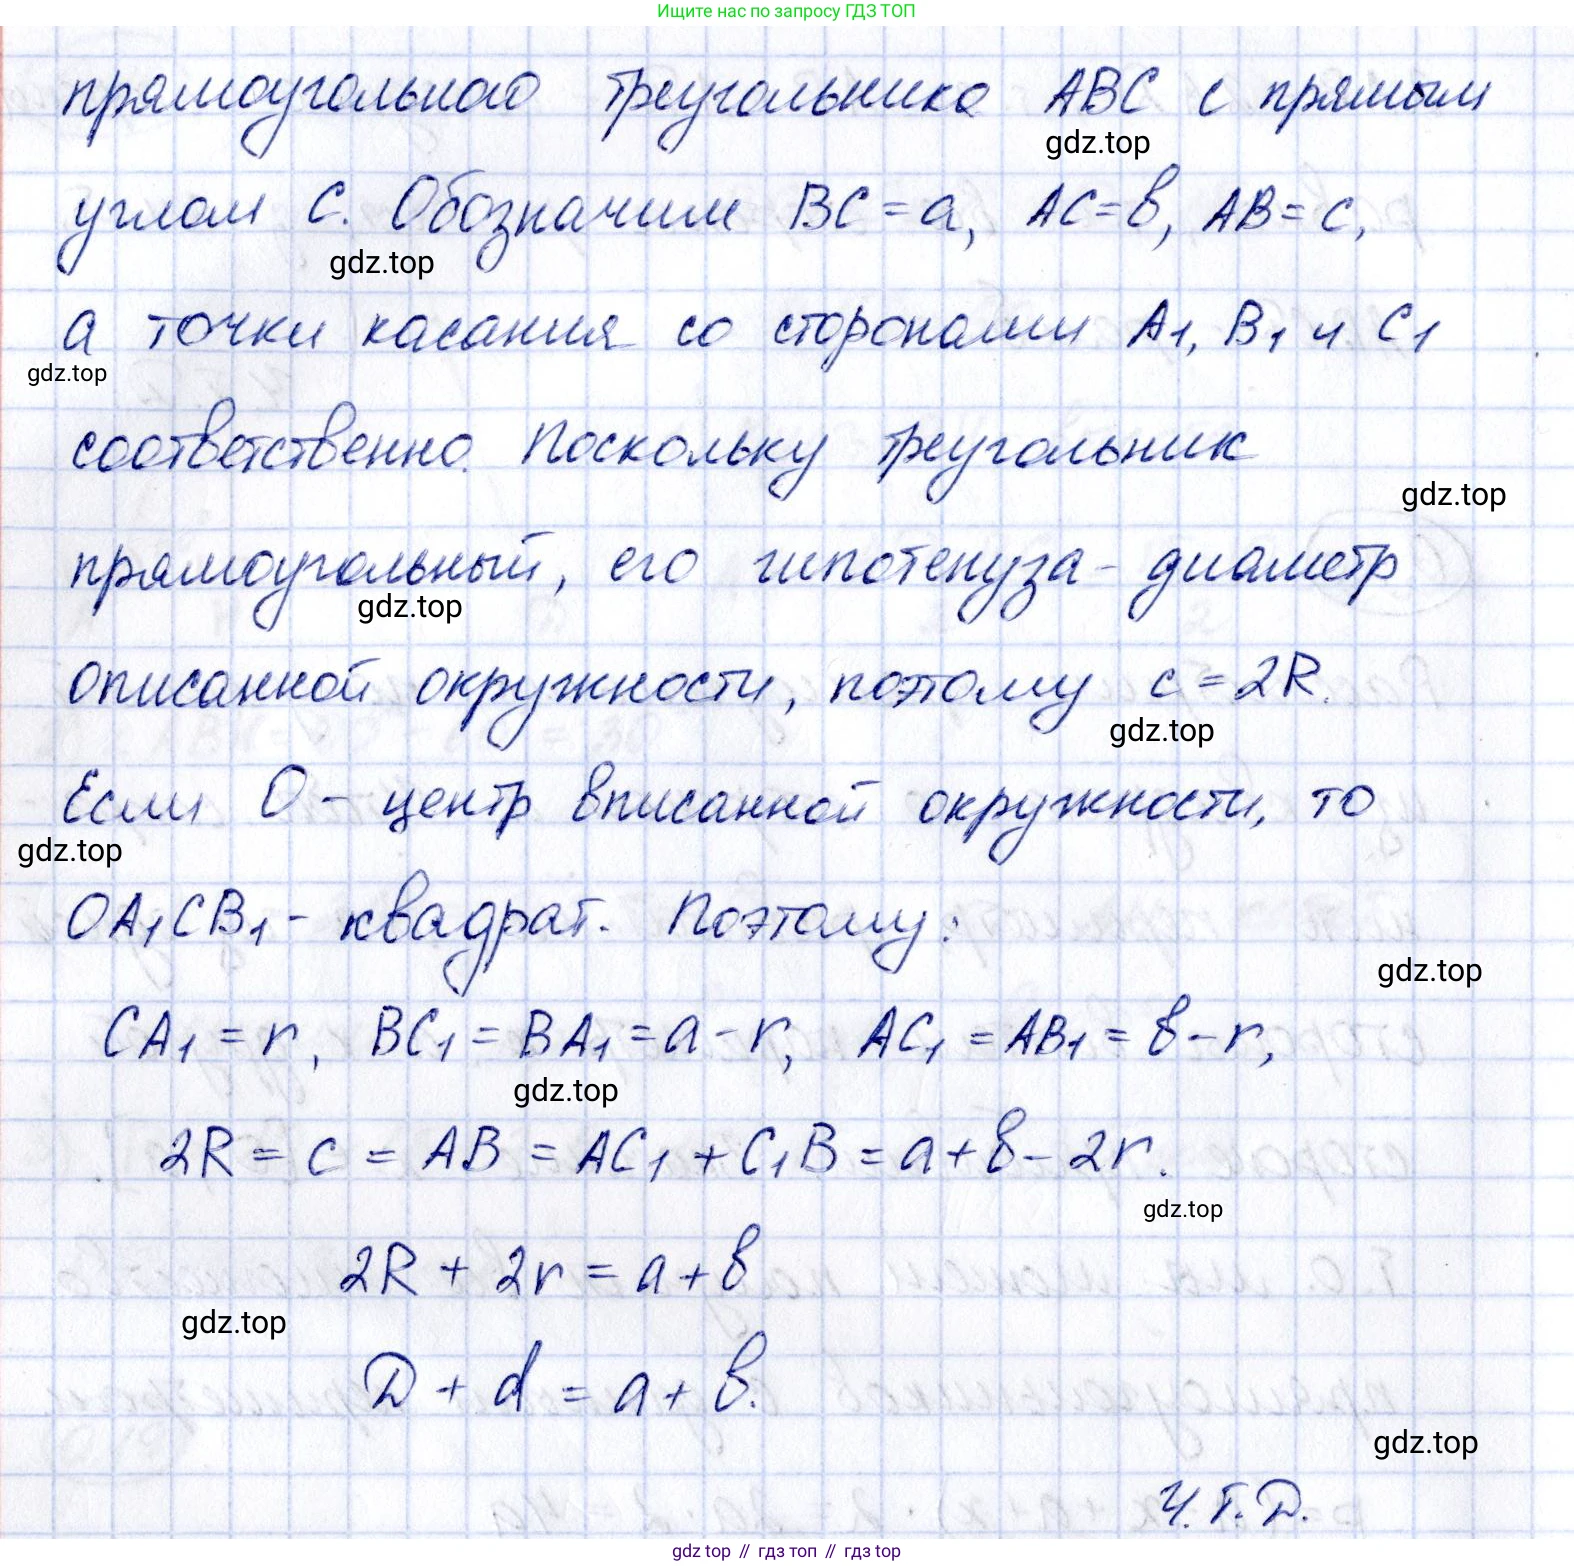 Ищите нас по запросу ГДЗ ТОП
прямоугольного треугольника ABC с прямым
gdz.top
углом C. Обозначим BC = a, AC = b, AB = c,
gdz.top
а точки касания со сторонами A₁, B₁ и C₁
gdz.top
соответственно. Поскольку треугольник
gdz.top
прямоугольный, его гипотенуза - диаметр
gdz.top
описанной окружности, поэтому c = 2R.
gdz.top
Если O - центр вписанной окружности, то
gdz.top
OA₁CB₁ - квадрат. Поэтому:
gdz.top
CA₁ = r, BC₁ = BA₁ = a - r, AC₁ = AB₁ = b - r,
gdz.top
2R = c = AB = AC₁ + C₁B = a + b - 2r.
gdz.top
2R + 2r = a + b
gdz.top
D + d = a + b.
gdz.top
Ч.Т.Д.
gdz top // гдз топ // гдз top